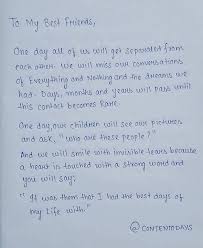 To My Best Friends,
One day all of us will get separated from
each other. We will miss our conversations
of Everything and Nothing and the dreams we
had. Days, months and years will pass until
this contact becomes Rare.
One day, our children will see our pictures
and ask, "who are these people?"
And we will smile with invisible tears because
a heart is touched with a strong word and
you will say;
"It was them that I had the best days of
my Life with."
@CONTENTODAYS